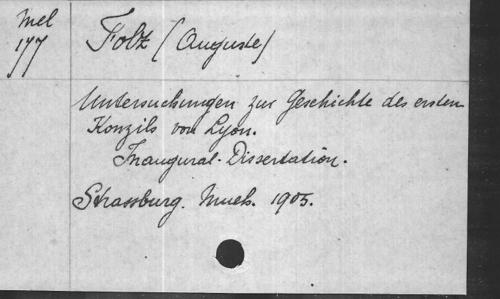 Mel
177
Folz (Auguste)
Untersuchungen zur Geschichte des ersten
Konzils von Lyon.
Inaugural-Dissertation.
Strassburg. Mueh. 1905.